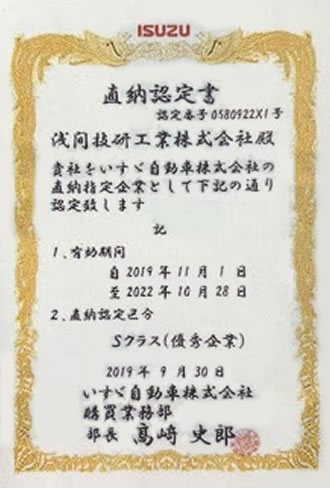 ISUZU
直納認定書
認定番号0580922X1号
浅间技研工業株式会社殿
貴社をいすゞ自動車株式会社の
直納指定企業として下記の通り
認定致します
記
1、有効期间
自2019年11月1日
至2022年10月28日
2、直納認定区分
Sクラス(優秀企業)
2019年9月30日
いすゞ自動車株式会社
購買業務部
部長 髙﨑史郎